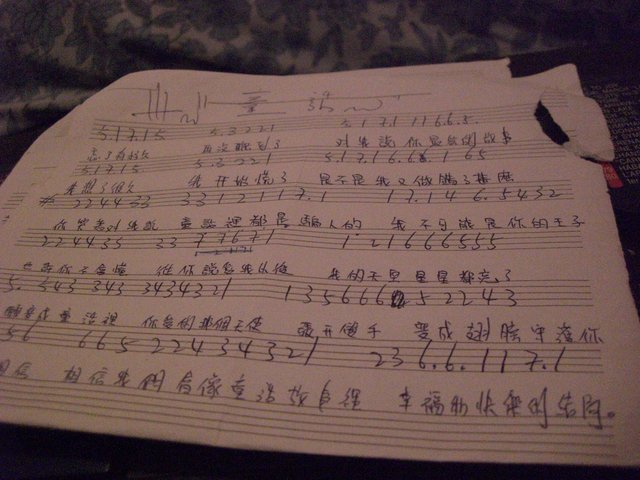 童话
5.1715 5.3221 5.1.7.1 116.6.5.
忘了有多久 再沒聽到了 對我說你最愛的故事
5.1715 5.3221 5.1.7.1.6.6. 1 65
我想了很久 我开始慌了 是不是我又做錯了甚麼
2244343 33 121171. 17.146.5432
你哭著对我說 童話裡都是騙人的 我不可能是你的王子
2244435 33 77671 1 21666555
也許你不會懂 從你說愛我以後 我的天星星都亮了
5. 543 343 3434321 1356665 2243
願变成童話裡 你愛的那個天使 張开雙手 变成翅膀守護你
56 665 224 34321 236.6.117.1
相信 相信我們會像童話故事裡 幸福和快樂的结局。